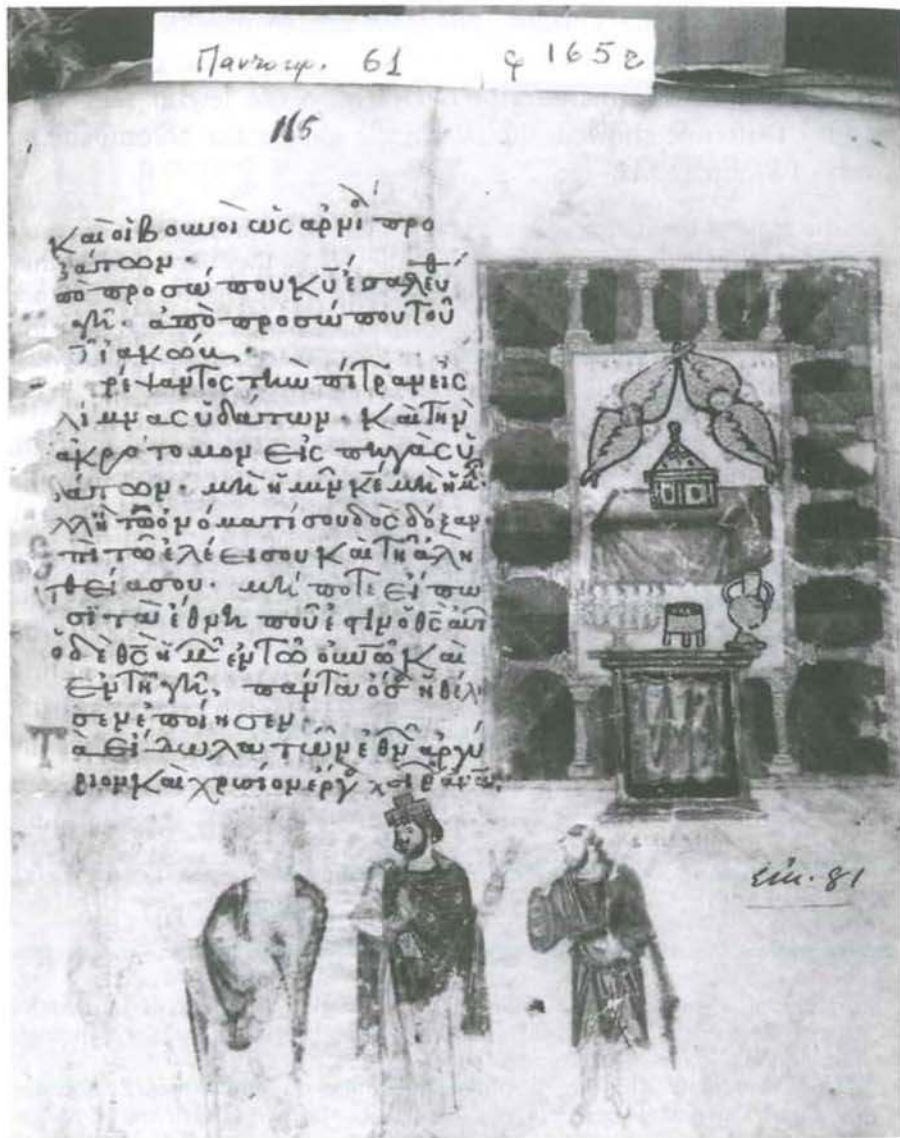 Παντοκρ. 61 φ 165 r
115
Καὶ οἱ Βουνοὶ ὡς ἀρνί προ
βάτων·
πὸ προσώπου κ̅υ̅ ἐσαλεύθ
γῆ· ἀπὸ προσώπου τοῦ
ἰακώβ,
ρέψαντος τὴν πέτραν εἰς
λίμνας ὑδάτων· Καὶ τὴν
ἀκρότομον εἰς πηγὰς ὑ
δάτων· μὴ ἡμῖν κ̅ε̅ μὴ ἡμ
ἀλλ ἢ τῷ ὀνόματί σου δὸς δόξαν
πὶ τῷ ἐλέει σου Καὶ τῇ ἀλη
θείᾳ σου· μή ποτε εἴπω
σι τὰ ἔθνη ποῦ ἐστιν ὁ θ̅ς̅ αὐτ
ὁ δὲ θ̅ς̅ ἡμ ἐν τῷ οὐνῶ Καὶ
ἐν τῇ γῇ, πάντα ὅσ ἠθέλη
σεν ἐποίησεν·
Τὰ εἴδωλα τῶν ἐθν ἀργύ
ριον Καὶ χρυσίον ἔργ χειρ
εἰκ. 81